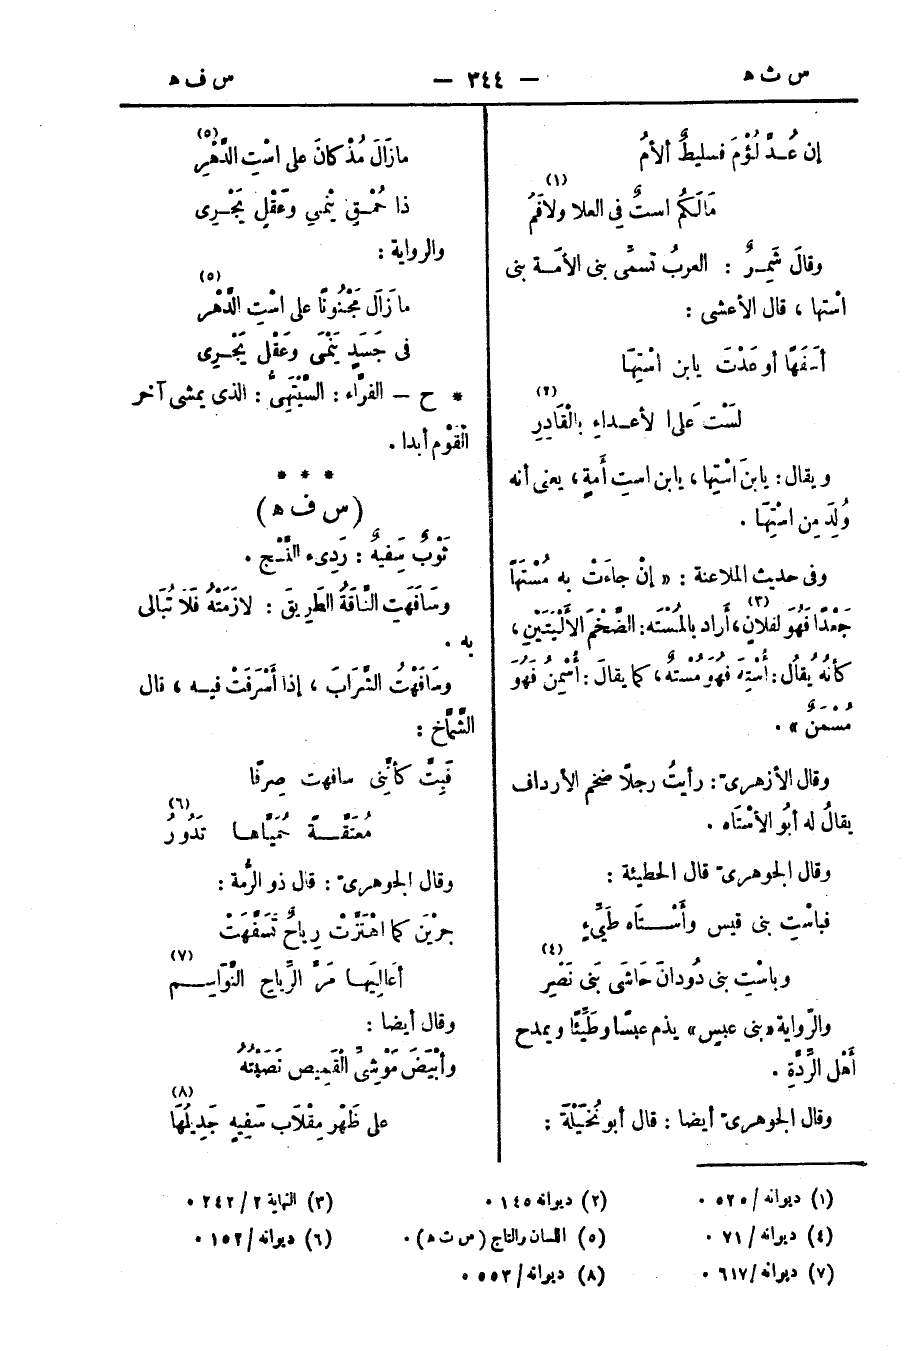 س ث ه — ٣٤٤ — س ف ه
إن عُــدَّ لُؤْمَ فسليطٌ ألأمُ
مَالَكُم استٌ فى العلا ولا فَمُ (١)
وقالَ شَمِــرٌ : العربُ تسمَّى بنى الأمَــة بنى
اسْتها ، قال الأعشى :
أسَفَهًا أو عَدْتَ يابن اسْتِهَا
لسْتَ عَلى الأعــداءِ بالْقَادِرِ (٢)
ويقال : يابنَ اسْتِها ، يابن استِ أَمةٍ ، يعنى أنه
وُلِدَ مِن اسْتِهَا .
وفى حديث الملاعنة : « إنْ جاءَتْ به مُسْتَهًا
جَعْدًا فَهُوَ لفلانٍ(٣) ، أراد بالمُسْتَه : الضَّخْمَ الأَلْيَتَيْنِ ،
كأنهُ يُقالُ : أُسْتِهَ فَهُوَ مُسْتَهٌ ، كما يقالَ : أُسْمِنَ فَهُوَ
مُسْمَنٌ » .
وقال الأزهرىّ : رأيتُ رجلًا ضخم الأرداف
يقالُ له أبُو الأسْتَاه .
وقال الجوهرىّ قال الحطيئة :
فباسْتِ بنى قيس وأَسْــتَاه طَيِّءٍ
وباسْتِ بنى دُودانَ حَاشَى بَنى نَصْرِ (٤)
والرّواية «بنى عبس» يذم عبسًا وطَيِّئًا ويمدح
أَهْل الرِّدَّةِ .
وقال الجوهرىّ أيضا : قال أبو نُخَيْلَةَ :
مازَالَ مُذْ كانَ على اسْتِ الدَّهْرِ (٥)
ذا حُمْــقٍ يَنْمِي وعَقْلٍ يَجْــرِى
والرواية :
ما زَالَ مَجْنُونًا على اسْتِ الدَّهْرِ (٥)
فى جَسَدٍ يَنْمَى وعَقْلٍ يَجْــرِى
* ح — الفرّاء : السَّيْتَهِىُّ : الذى يمشى آخر
الْقَوْم أبدا .
* * *
(س ف ه)
ثَوْبٌ سَفِيهٌ : رَدِىء النَّسْج .
وسَافَهَتِ النَّاقَةُ الطَرِيقَ : لازَمَتْهُ فَلَا تُبَالى
به .
وسَافَهْتُ الشَّرَابَ ، إذا أَسْرَفَتْ فيــه ، قال
الشَّمَّاخ :
فَبِتُّ كأنَّنِى سافهت صِرفًا
مُعَتَّقــةً حُمَيَّاهــا تَدُورُ (٦)
وقال الجوهرىّ : قال ذو الرُّمة :
جرَيْنَ كما اهْتَزَّتْ رِياحٌ تَسَفَّهَتْ
أعَالِيَهــا مَرَّ الرِّياحِ النَّواسِــم (٧)
وقال أيضا :
وأبْيَضَ مَوْشِىِّ القَمِيص نَصَبْتُهُ
على ظَهْرِ مِقْلَاب سَفِيهٍ جَدِيلُهَا (٨)
(١) ديوانه / ٥٢٥ . (٢) ديوانه ١٤٥ . (٣) النهاية ٢ / ٢٤٢ .
(٤) ديوانه / ٧١ . (٥) اللسان والتاج (س ت ه) . (٦) ديوانه / ١٥٢ .
(٧) ديوانه / ٦١٧ . (٨) ديوانه / ٥٥٣ .